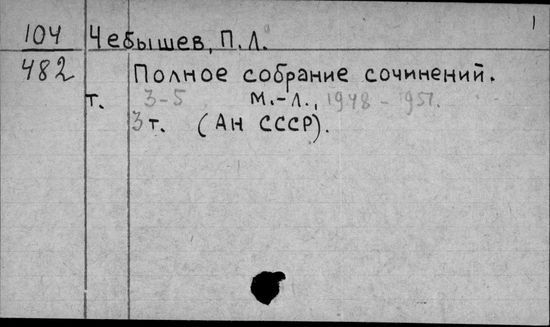 1
104 Чебышев, П.Л.
482 Полное собрание сочинений.
т. 3-5 М.-Л., 1948-1951.
3 т. (Ан СССР).